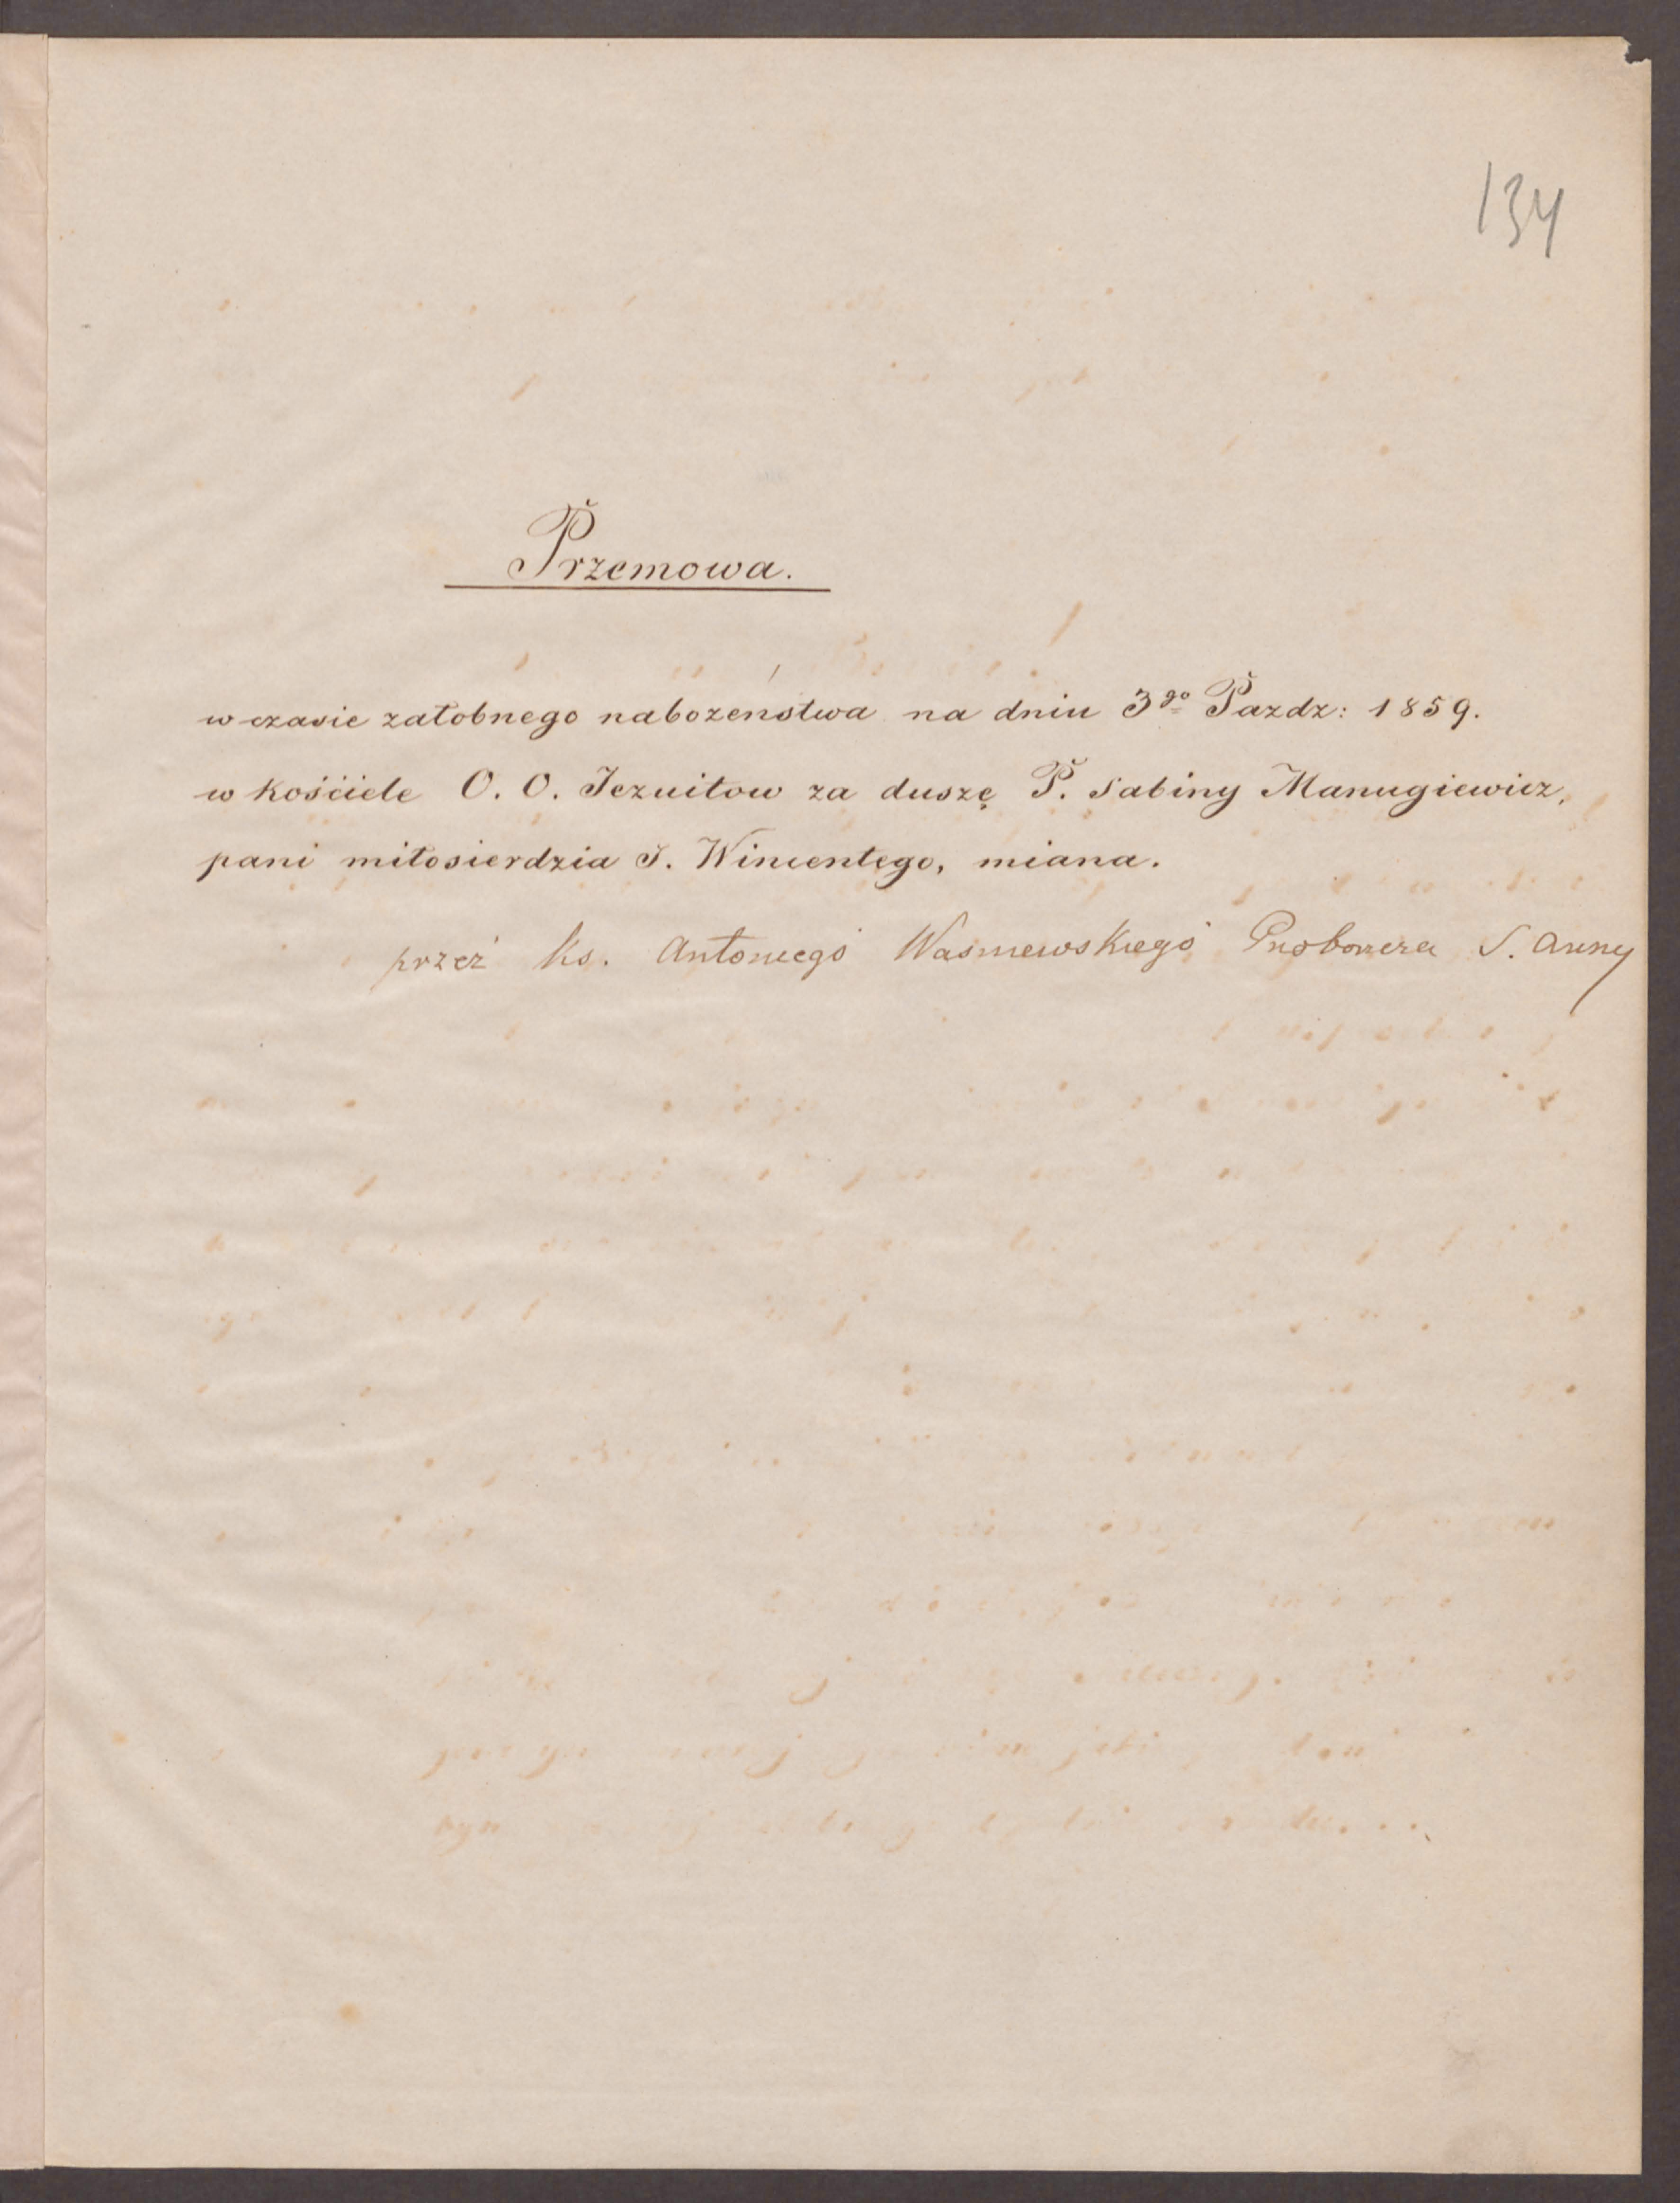 134
Przemowa.
w czasie załobnego nabożenstwa na dniu 3go Pazdz: 1859.
w kościele O. O. Jezuitow za duszę P. Sabiny Manugiewicz,
pani miłosierdzia S. Wincentego, miana.
przez Ks. Antoniego Waśniewskiego Proboszcza S. Anny